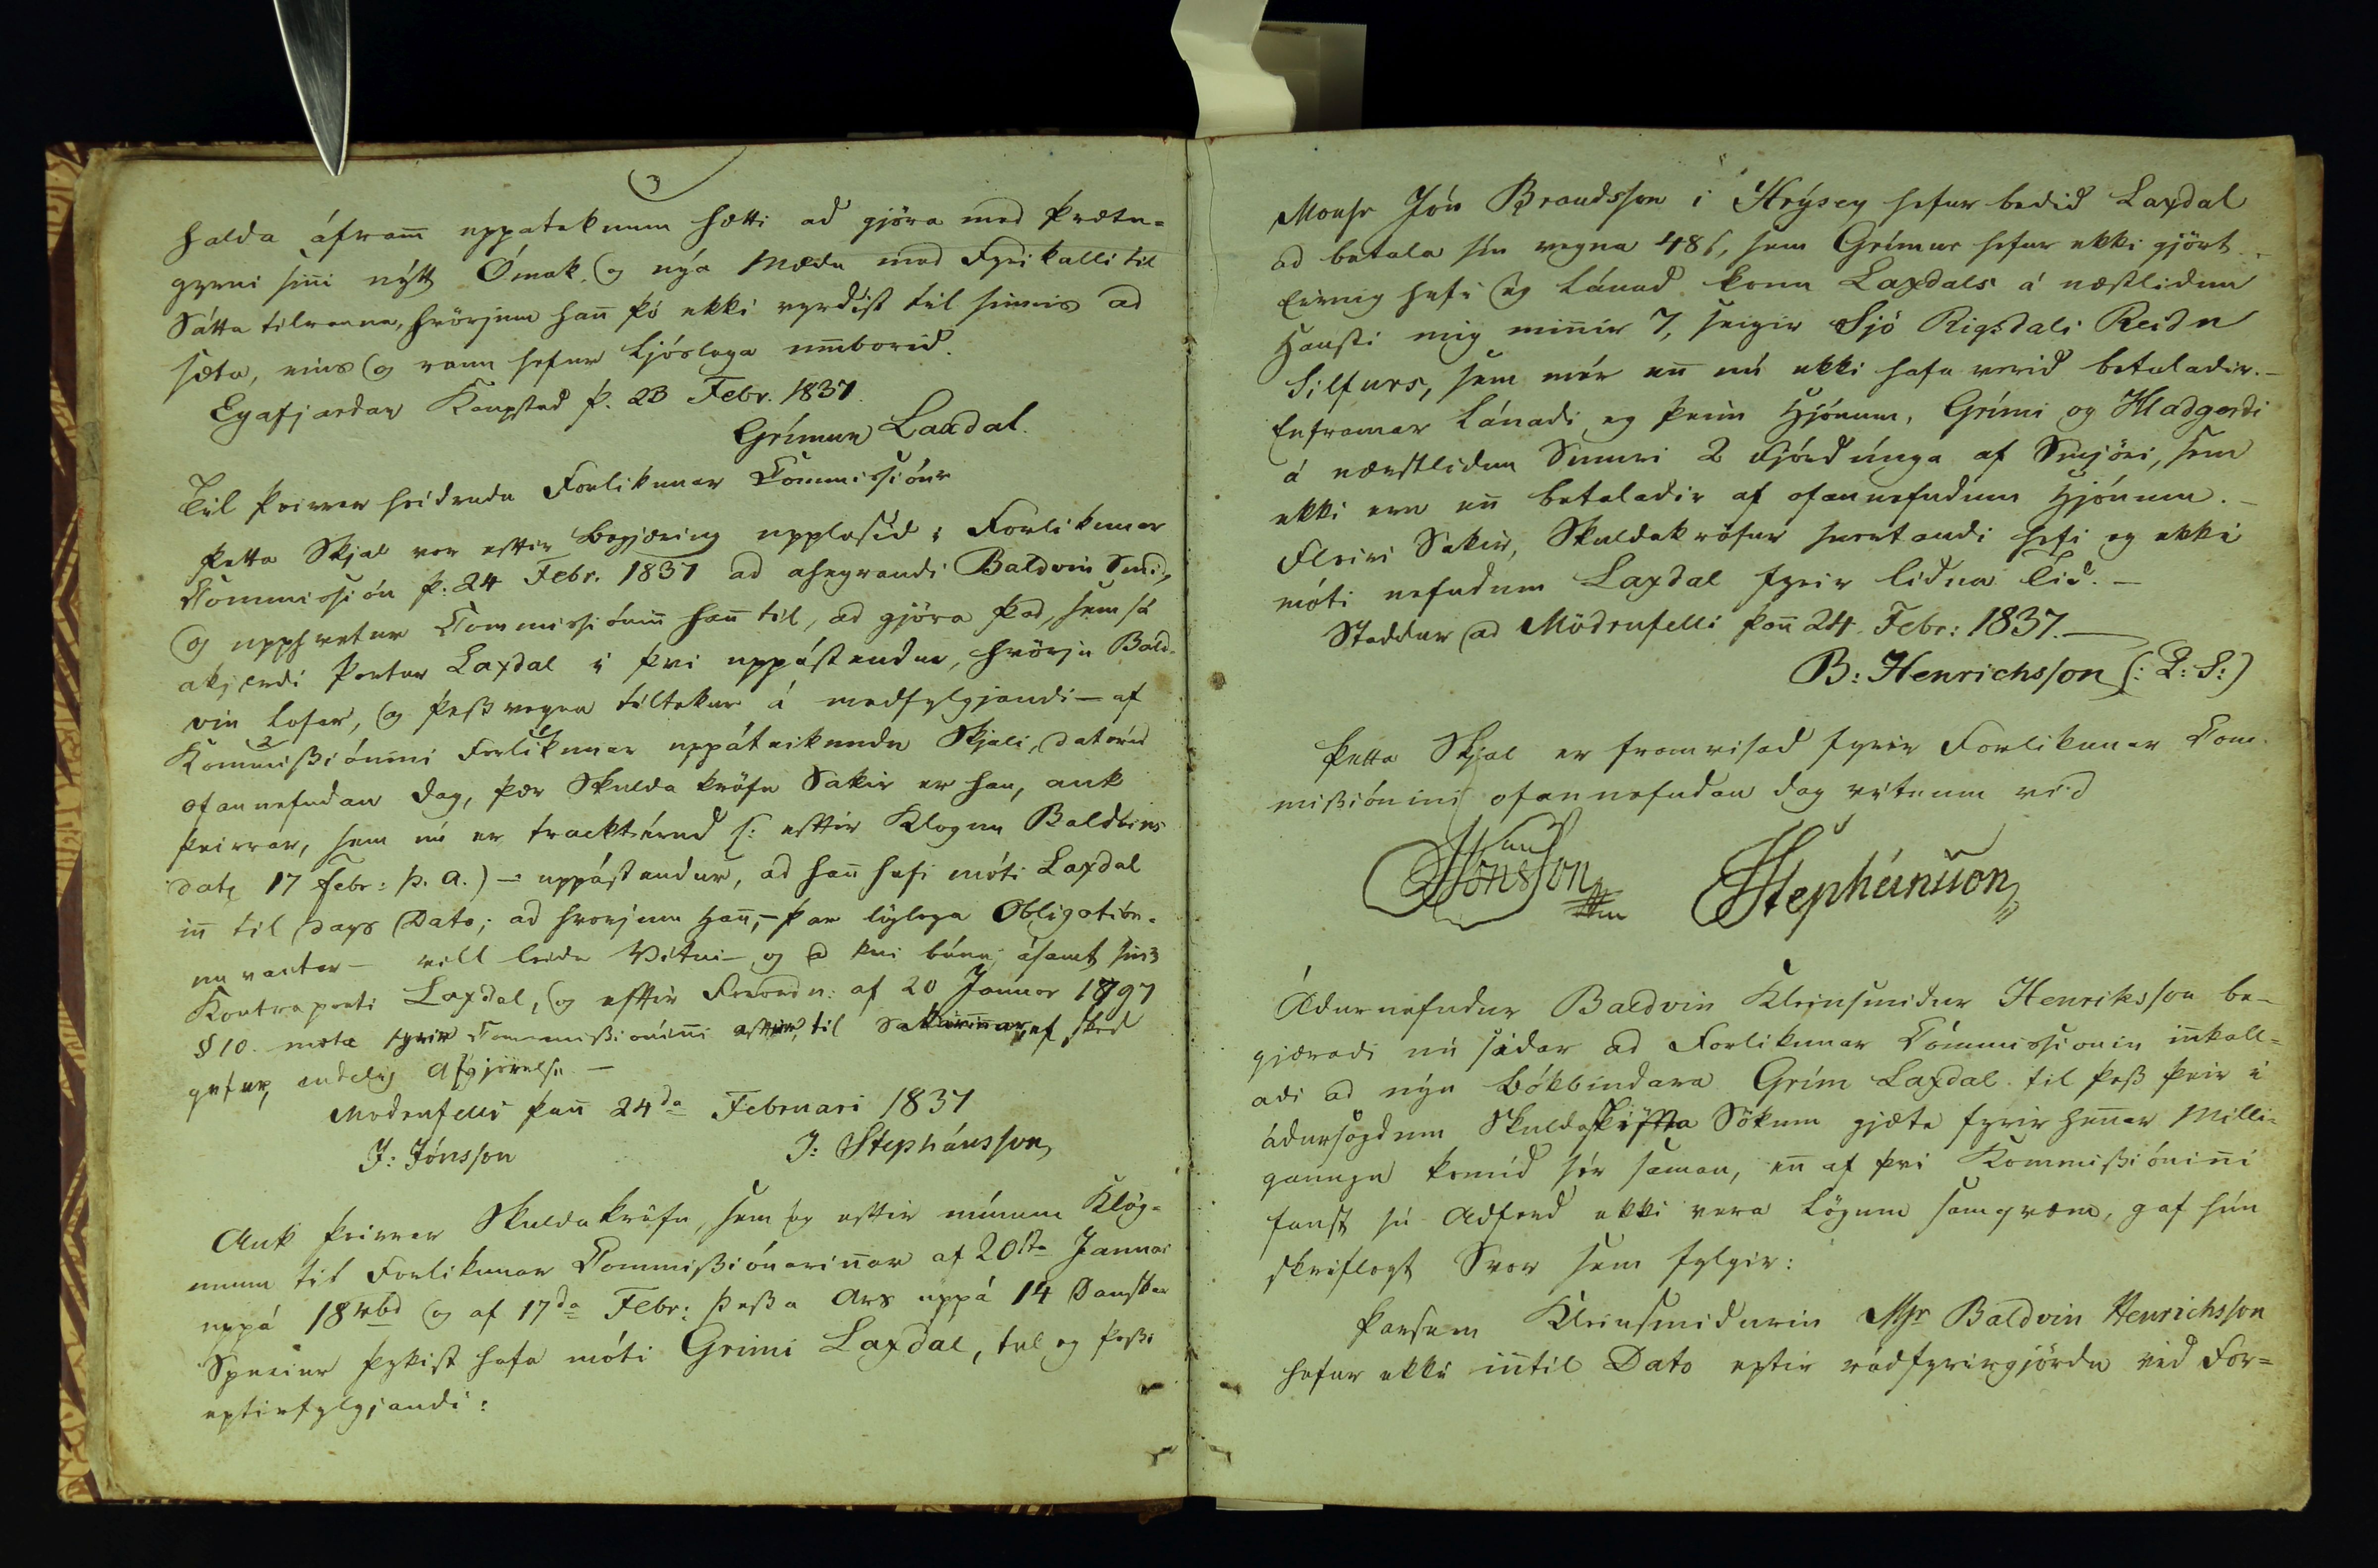 halda áfram̄ uppateknum hætti ad gjöra med þrætu-
gyrni sin̄i nýtt Ómak, og nýa Mædu med Fyrikalli til
Sátta tilrauna, hvörjum han̄ þó ekki vyrdist til sinnis ad
sæta, eins og raun hefur ljóslega um̄borid.
Eyafjardar Kaupstad þ. 23 Febr. 1837.
Grímur Laxdal.
Til þeirrar heidrudu Forlikunar Commissiónr
Þetta Skjal var eftir begjæring upplesid i Forlikunar
Commissión þ. 24 Febr. 1837 ad aheyrandi Baldvin Smid,
og upphvetur Commissiónin̄ han̄ til, ad gjöra þad, sem sá
akjærdi Partur Laxdal i þvi uppástendur, hvörju Bald-
vin lofar, og þess vegna tiltekur á medfylgjandi - af
Kommissiónini Forlikunar uppáteiknudu Skjali, daterud
ofannefndan dag, þær Skulda kröfu Sakir er han, auk
þeirrar, sem nú er tracktérud (: eftir Klögun Baldvins
dat. 17 Febr: þ. a.) - uppástendur, ad han̄ hafi móti Laxdal
in̄ til dags Dato; ad hvorjum han̄, - þar lögloga Obligation-
nu vantar - vill leida Vitni - og a þvi búin, ásamt sins
Kontraparti Laxdal, og eftir Forordn: af 20 Januar 1797
§ 10. mæta fyrir Commissiónin̄i aftur, til Sakarin̄ar, ef sked
getur, endelig Afgjörelse. -
Modrufelli þan̄ 24da Februari 1837
J: Jónsson J: Stephánsson
Auk þeirrar Skuldakröfu, sem eg eftir mínum Klög-
unum til Forlikunar Commissiónarin̄ar af 20sta Januar
uppá 18 rbd og af 17da Febr: þessa Ars uppá 14 Danskar
Speciur þykist hafa móti Grimi Laxdal, tel eg þessi
eptirfylgjandi:
Monsr Jón Brandsson i Hrýsey hefur bedid Laxdal
ad betala sín vegna 48 s, sem Grímur hefur ekki gjört.
Einnig hefi eg lánad konu Laxdals á næstlidnu
Hausti mig min̄ir 7, seigir Sjö Rigsdali Reidu
Silfurs, sem mér en̄ nú ekki hafa verid betaladir. -
Enframar lánadi eg þeim Hjónum, Grími og Hladgerdi
á næstlidnu Sumri 2 Fjórdúnga af Smjöri, sem
ekki eru en̄ betaladir af ofannefndum Hjónum. -
Fleiri Sakir, Skuldakröfur snertandi hefi eg ekki
móti nefndum Laxdal fyrir lidna tid. -
Staddur ad Mödrufelli þan̄ 24. Febr: 1837. -
B: Henrichsson (: L: S:)
Þetta Skjal er framvísad fyrir Forlikunar Com-
missiónini ofannefndan dag vitnum vid
Jónsson Stephánsson
Ádurnefndur Baldvin Kleinsmidur Henriksson be-
gjæradi nú sídar ad Forlikunar Commissionin in̄kall-
adi ad nýu bókbindara Grím Laxdal til þess þeir i
ádursögdum Skuldaskifta Sökum gjætu fyrir hen̄ar Milli-
gaungu komid sér saman, en̄ af þvi Kommissiónin̄i
fanst sú Adferd ekki vera lögum samqvæm, gaf hún
skriflegt Svar sem fylgir:
Þarsem Kleinsmidurin Mr Baldvin Henrichsson
hefur ekki in̄til Dato eptir rádfyrirgjördu vid For=